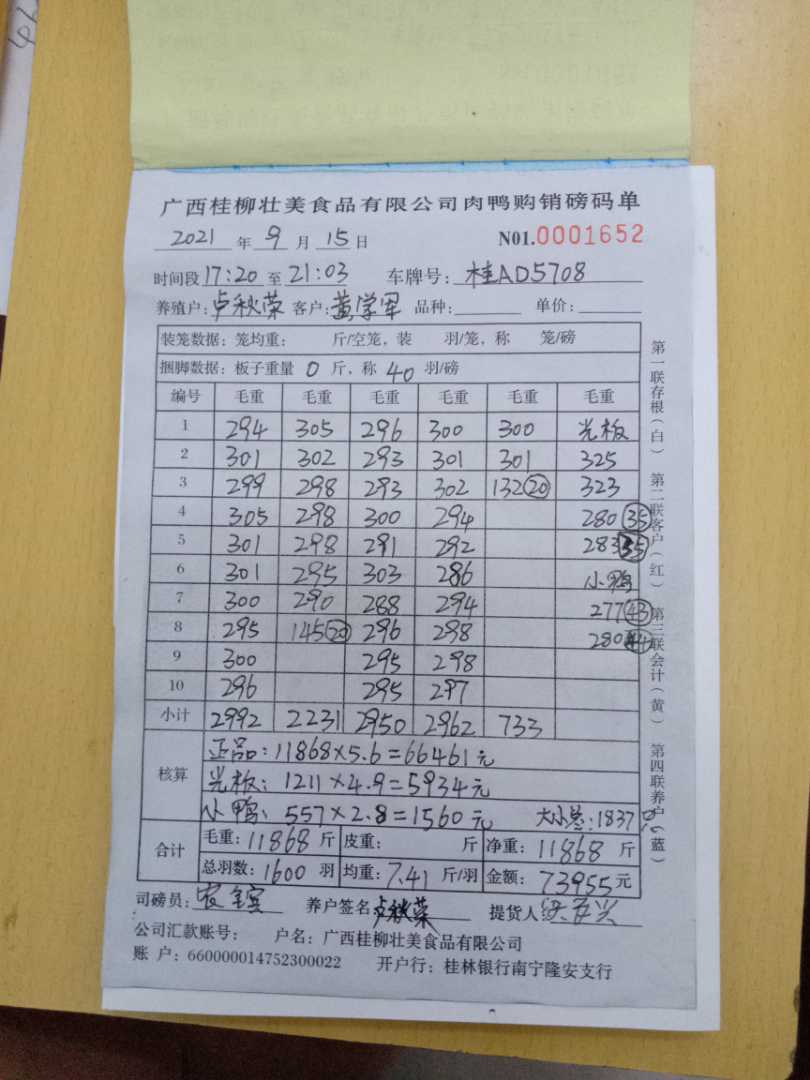 广西桂柳壮美食品有限公司肉鸭购销磅码单
2021 年 9 月 15 日 N01.0001652
时间段 17:20 至 21:03 车牌号: 桂AD5708
养殖户: 卢秋荣 客户: 黄学军 品种: 单价:
装笼数据: 笼均重: 斤/空笼, 装 羽/笼, 称 笼/磅
捆脚数据: 板子重量 0 斤, 称 40 羽/磅
编号 毛重 毛重 毛重 毛重 毛重 毛重
1 294 305 296 300 300 光板
2 301 302 293 301 301 325
3 299 298 293 302 132 20 323
4 305 298 300 294 280 35
5 301 298 291 292 283 35
6 301 295 303 286 小鸭
7 300 290 288 294 277 43
8 295 145 20 296 298 280 44
9 300 295 298
10 296 295 297
小计 2992 2231 2950 2962 733
核算
正品: 11868×5.6=66461元
光板: 1211×4.9=5934元
小鸭: 557×2.8=1560元 大小总:1837只
合计
毛重: 11868 斤 皮重: 斤 净重: 11868 斤
总羽数: 1600 羽 均重: 7.41 斤/羽 金额: 73955元
司磅员: 养户签名 卢秋荣 提货人
公司汇款账号: 户名: 广西桂柳壮美食品有限公司
账 户: 660000014752300022 开户行: 桂林银行南宁隆安支行
第一联存根(白) 第二联客户(红) 第三联会计(黄) 第四联养户(蓝)